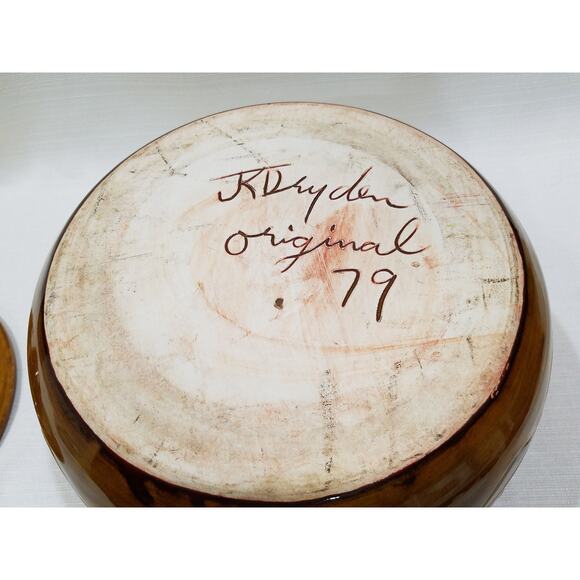 JKDryden
original
79